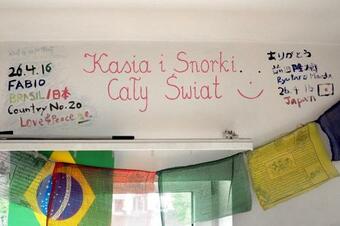 26.4.16
FABIO
BRASIL/日本
Country No.20
Love&Peace
Kasia i Snorki...
Cały Świat
ありがとう
Ryutaro
26.4.16
Japan